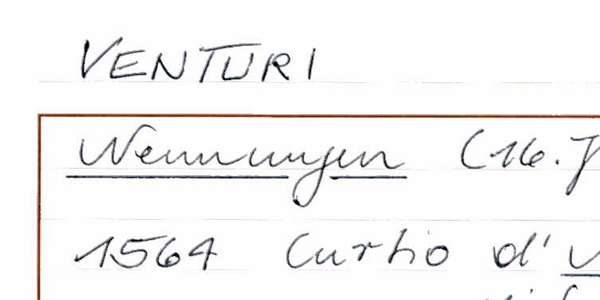 VENTURI
Nennungen (16.J
1564 Curtio d'